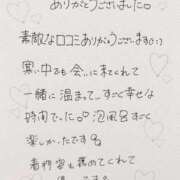 ありがとうございました。
素敵な口コミありがとうございます
寒い中でも会いに来てくれて
一緒に温まって、すごく幸せな
時間でした。泡風呂すごく
楽しかったです
着物姿も褒めてくれて